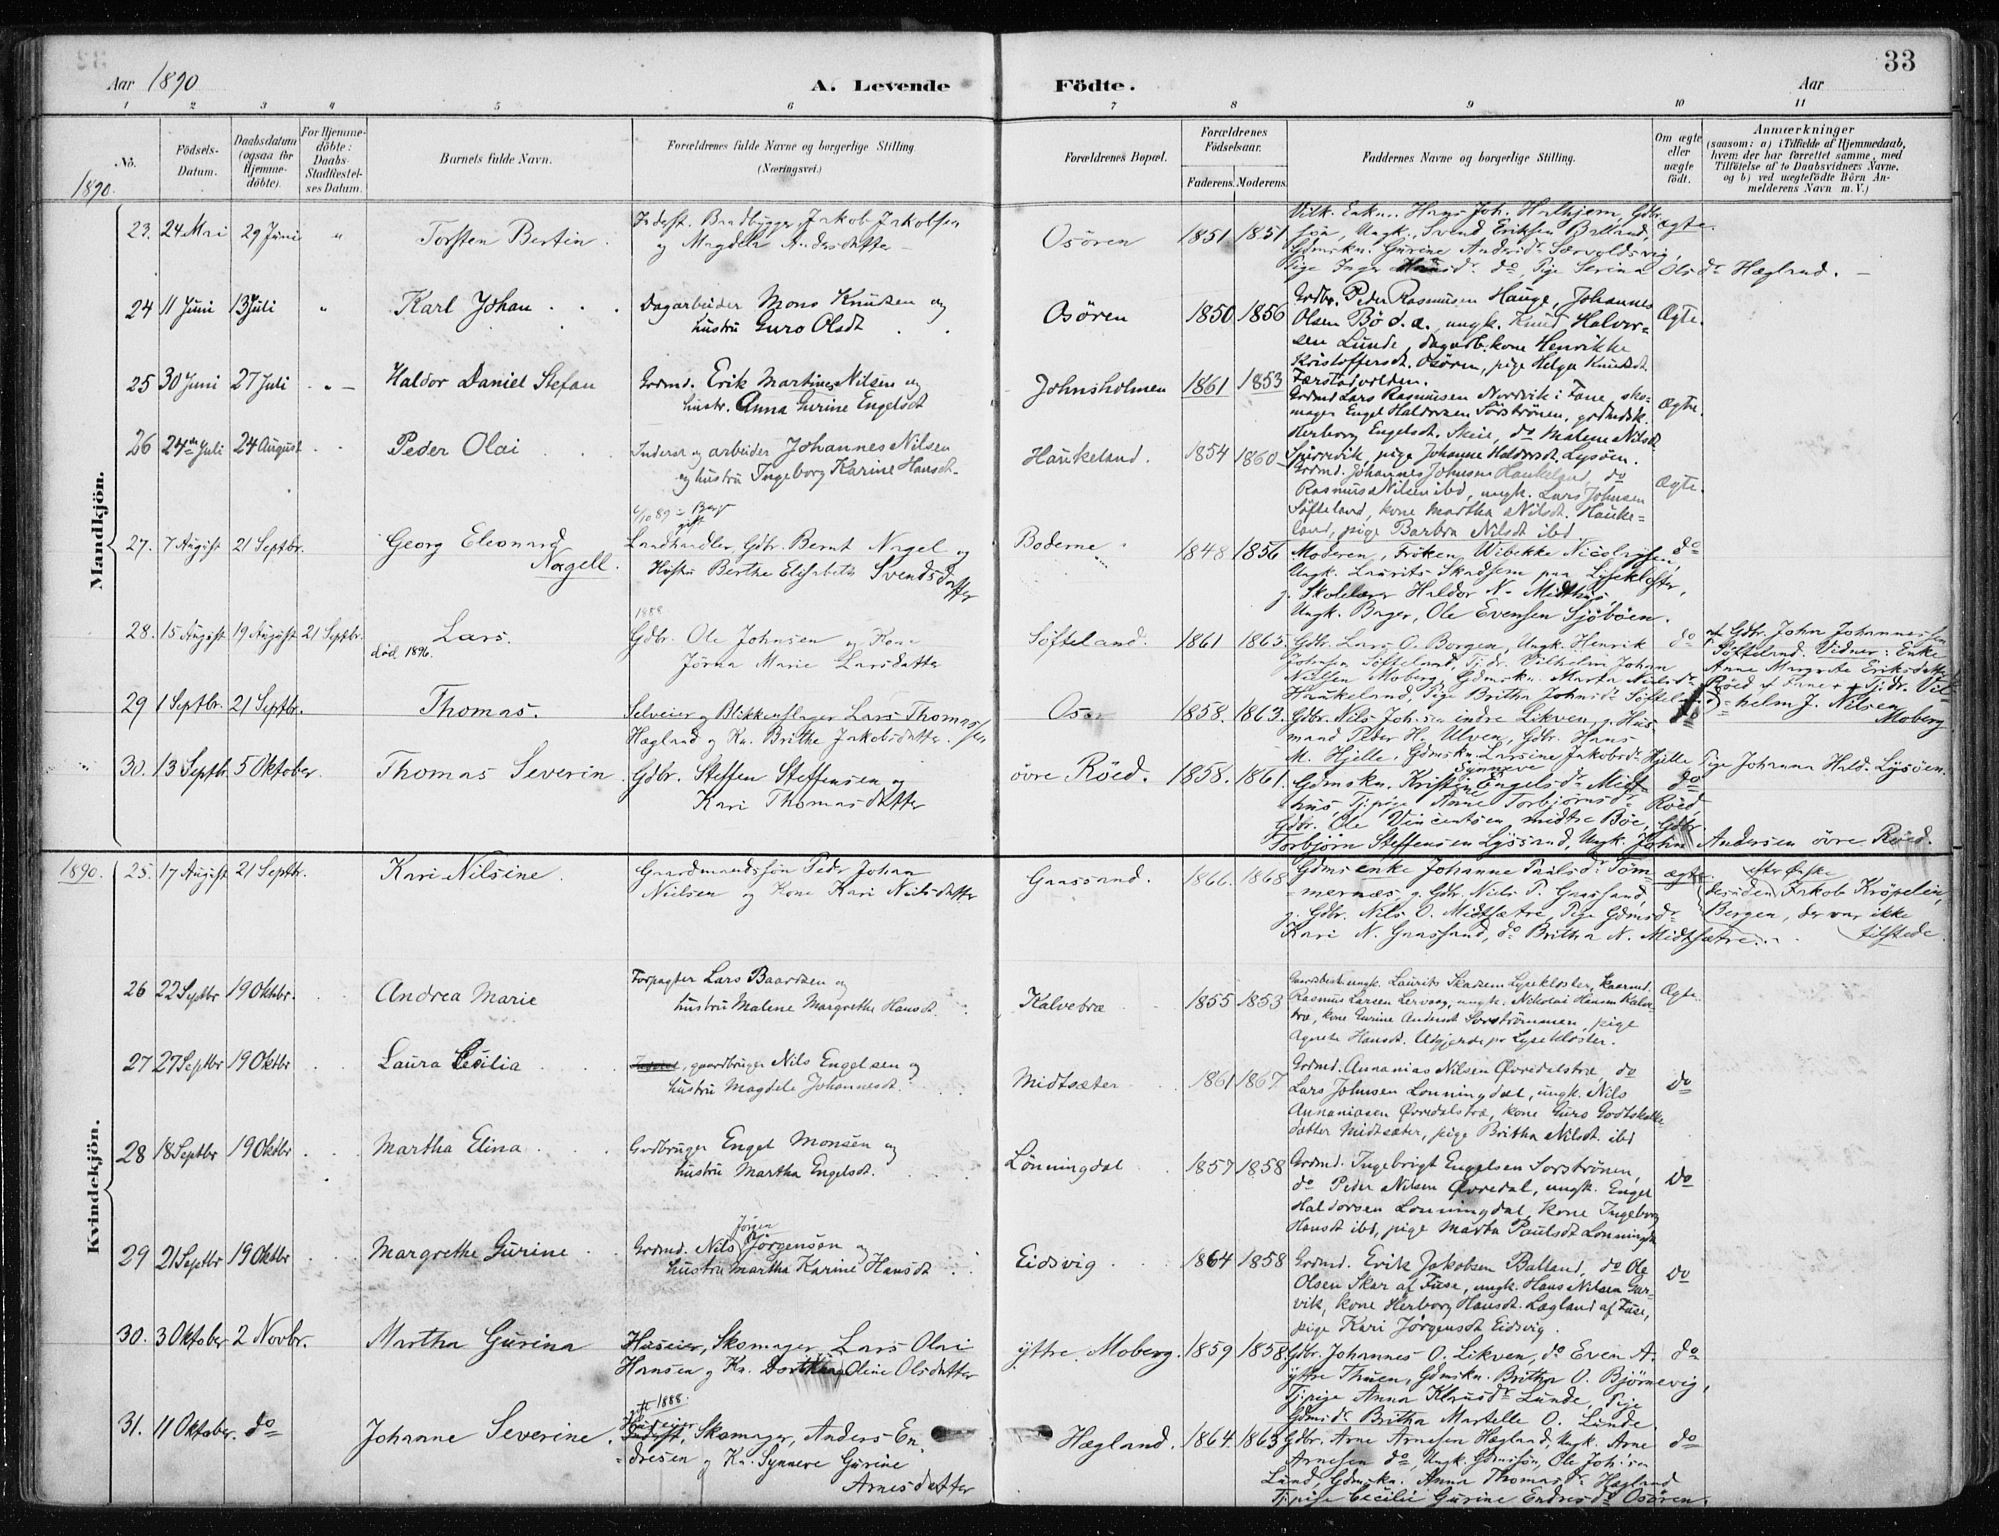 33
Aar 1890
A. Levende Födte.
Aar
1 2 3 4 5 6 7 8 9 10 11
No.
Födsels-Datum.
Daabsdatum (ogsaa for Hjemme-döbte).
For Hjemme-döbte: Daabs-Stadfæstel-ses Datum.
Barnets fulde Navn.
Forældrenes fulde Navne og borgerlige Stilling
(Næringsvei.)
Forældrenes Bopæl.
Forældrenes Födselsaar.
Faderens. Moderens.
Faddernes Navne og borgerlige Stilling.
Om ægte eller uægte födt.
Anmærkninger
(saasom: a) i Tilfælde af Hjemmedaab, hvem der har forrettet samme, med Tilföielse af to Daabsvidners Navne, og b) ved uægtefödte Börn An-melderens Navn m. V.)
1890.
Mandkjön.
23. 24 Mai 29 Juni " Torsten Bertin.
Inderst. Brødbygger Jakob Jakobsen
og Magdela Andersdatter
Osören 1851 1851
Hans Joh. Halhjem, Gdbr.
Ungk. Svend Eriksen Balland,
Gdmskn. Gurine Andersdr Særvoldsvig,
Pige Inger do, Pige Serina Olsdr Hægland.
ægte.
24 11 Juni 13 Juli " Karl Johan
Dagarbeider Mons Knutsen og
hustru Guro Olsdt
Osören 1850 1856
Grdbr. Peder Rasmussen Hauge, Johannes
Olsen Bö d.æ. ungk. Knud Halvor-
sen Lunde, dagarb. kone Henrikke
Kristoffersdt. Osören, pige Helga Knutsdt.
Færstadvolden.
Ægte.
25 30 Juni 27 Juli " Haldor Daniel Stefan
Grdmd. Erik Martinus Nilsen og
hustr. Anna Gurine Engelsdt
Johnsholmen 1861 1853
Grdmd Lars Rasmussen Nordvik i Fane, sko-
mager Engel Haldorsen Sörströnen, grdmdsk.
Herborg Engelsdt. Skeie, do Malene Nilsdt
pige Johanne Haldorsdt. Lysöen.
Ægte.
26 24de Juli 24 August Peder Olai
Inderst og arbeider Johannes Nilsen
og hustru Ingeborg Karine Hansdt.
Haukeland. 1854 1860
Grdmd. Johannes Johnsen Haukeland, do
Rasmus Nilsen ibd, ungk. Lars Johnsen
Söfteland, kone Martha Nilsdt. Hauke-
land, pige Barbra Nilsdt ibd.
Ægte.
27. 7 August 21 Septbr. Georg Eleonard
Nagell.
gift
Landhandler, Gdbr. Bernt Nagel og
Hustru Berthe Elisabeth Svendsdatter
Boderne 1848 1856
Moderen, Fröken Wibekke Nicolaysen,
Ungk. Laurits Skadsem paa Lysekloster,
Skolelærer Haldor N. Midthus,
Ungk. Bager, Ole Evensen Sjöböen.
do
28. 15 August 19 August 21 Septbr. Lars.
död 1896.
1888
Gdbr. Ole Johnsen og Kone
Jörna Marie Larsdatter
Söfteland. 1861 1865.
Gdbr. Lars O. Borgen, Ungk. Henrik
Johnsen Söfteland, Tj.dr. Vilhelm Johan
Nielsen Moberg, Gdmskn. Marta Nielsdr
Haukeland, Pige Britha Johnsdr Söfteland
do
af Gdbr. John Johannessen
Söfteland. Vidner: Enke
Anne Margrete Eriksdatter
Röed af Fane + Tj.dr. Vil-
helm J. Nilsen
Moberg
29 1 Septbr. 21 Septbr. Thomas.
Selveier og Blikkenslager Lars Thomassen
Hægland og Kn. Brithe Jakobsdatter.
Osör 1858. 1863.
Gdbr. Nils Johnsen indre Likven, g. Hus-
mand Peder H. Ulven, Gdbr. Hans
M. Hjelle, Gdmskn. Larsine Jakobsdr Hjelle
do
Pige Johanna Hald. Lysöen.
30. 13 Septbr. 5 Oktober. Thomas Severin
Gdbr. Steffen Steffensen og
Kari Thomasdatter
övre Röed. 1858. 1861.
Synneve
Gdmskn. Kristin Engelsdr Midt-
hus, Tj.pige Anne Torbjörnsdr Röed,
Gdbr. Ole Vincentsen midtre Böe, Gdbr
Torbjörn Steffensen Lyssand, Ungk. John Andersen övre Röed.
do
1890.
Kvindekjön.
25. 17 August 21 Septbr. Kari Nilsine.
Gaardmandssön Pedr Johan
Nielsen og Kone Kari Nielsdatter
Gaassand. 1866. 1868
Gdms enke Johanne Paalsdr Töm-
mernæs, g. Gdbr. Nils P. Gaassand,
g. Gdbr. Nils O. Midtsætre, Pige Gdmsdr
Kari N. Gaassand, do Britha N. Midtsætre.
ægte
efter Önske
desuden Jakob Kröpelin,
Bergen, der var ikke
tilstede.
26 22 Septbr 19 Oktbr. Andrea Marie
Forpagter Lars Baardsen og
hustru Malene Margrethe Hansdt.
Kalvebræ 1855 1853
Gaardbest. ungk. Laurits Skadsem Lysekloster, Gaarmd.
Rasmus Larsen Lervaag, ungk. Nikolai Hansen Kalve-
træ, kone Gurine Andersdt Sorströnnen, pige
Agnete Hansdt. Udgjerde pr Lysekloster.
Ægte.
27 27 Septbr 19 Oktbr Laura Cecilia
gaardbruger Nils Engelsen og
hustru Magdele Johannesdt.
Midtsæter 1861 1867
Grdmd. Annanias Nilsen Övredalstræ, do
Lars Johnsen Lonningdal, ungk. Nils
Annaniasen Övredalstræ, kone Guro Godtskalks
datter Midtsæter, pige Britha Nilsdt. ibd
do
28 18 Septbr 19 Oktbr Martha Elina
Grdbruger Engel Monsen og
hustru Martha Engelsdt.
Lönningdal 1857 1858
Grdmd. Ingebrigt Engelsen Sorströnen,
do Peder Nilsen Övredal, ungk. Engel
Haldorsen Lonningdal, kone Ingeborg
Hansdt ibd, pige Martha Paulsdt Lonningdal
do
29 21 Septbr 19 Oktbr Margrethe Gurine
Jörgen
Grdmd. Nils Jörgensen og
hustru Martha Karine Hansdt
Eidsvig 1864 1858
Grdmd. Erik Jakobsen Balland, do Ole
Olsen Skar af Fuse, ungk. Hans Nilsen Gar-
vik, kone Herborg Hansdt. Lægland af Fuse,
pige Kari Jörgensdt Eidsvig.
do
30. 3 Oktober 2 Novbr. Martha Gurina
Huseier, Skomager Lars Olai
Hansen og Kn. Dorthea Oline Olsdatter
yttre Moberg. 1859 1858.
Gdbr. Johannes O. Likven, do Even A.
yttre Thuen, Gdmskn. Britha O. Björnevig,
Tj.pige Anna Klausdr Lunde, Pige
Gdmsdr Britha Martelle O. Lunde.
do
31. 11 Oktober. do Johanne Severine.
gift 1888.
Huseier
Inderst, Skomager, Anders En-
dresen og Kn. Synneve Gurine
Arnesdatter
Hægland. 1864. 1863
Gdbr. Arne Arnesen Hægland, Ungk. Arne
Arnesen do, Ungk. Gdmssön, Ole Johnsen
Lund, Gdmskn. Anna Thomasdr Hægland
Tj.pige Cecilie Gurine Endresdr Osören.
do